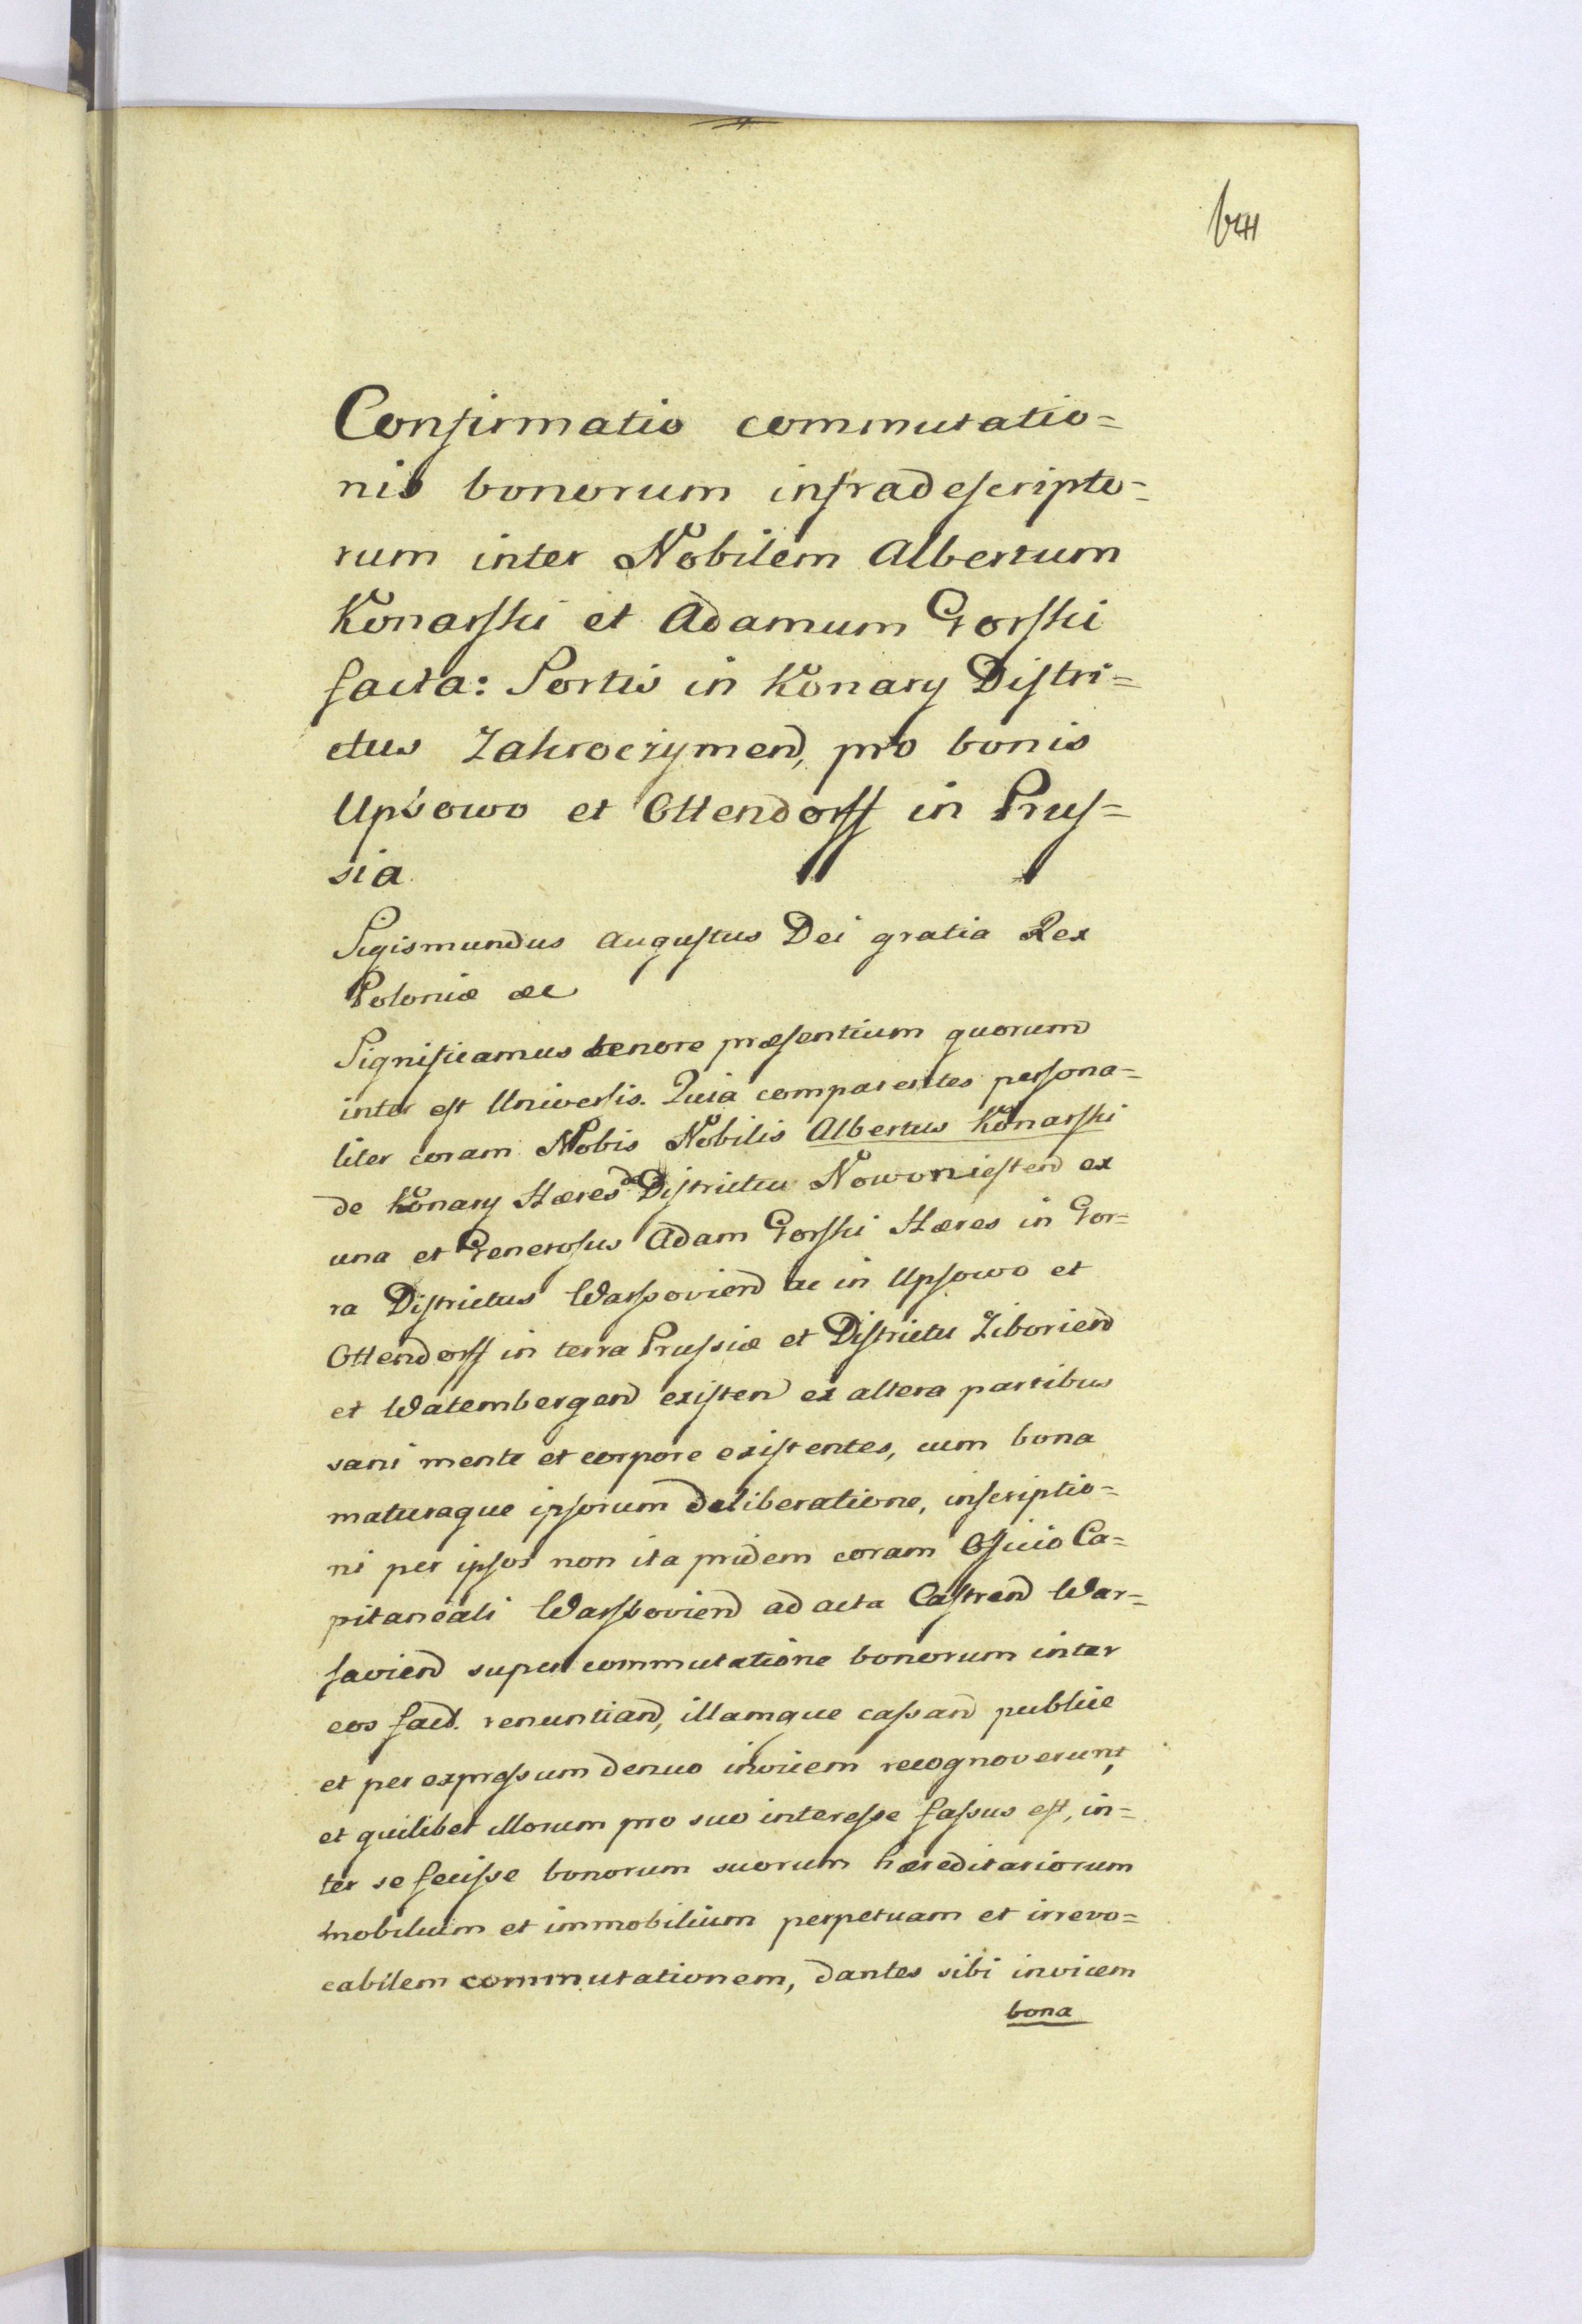 Confirmatio commutatio=
nis bonorum infradescripto=
rum inter Nobilem Albertum
Konarski et Adamum Gorski
facta: Sortis in Konary Distri=
ctus Zakroczymen, pro bonis
Upsowo et Ottendorff in Prus=
sia
Sigismundus Augustus Dei gratia Rex
Poloniæ &c
Significamus tenore præsentium quorum
inter est Universis. Quia comparentes persona=
liter coram Nobis Nobilis Albertus Konarski
de Konary Hæres de Districtu Nowomiesten ex
una et Generosus Adam Gorski Hæres in Gor=
ra Districtus Warsovien ac in Upsowo et
Ottendorff in terra Prussiæ et Districtu
et existen ex altera partibus
sani mente et corpore existentes, cum bona
maturaque ipsorum deliberatione, inscriptio=
ni per ipsos non ita pridem coram Officio Ca=
pitaneali Warsovien ad acta Castren War=
savien super commutatione bonorum inter
eos fact. renuntian, illamque cassan publice
et per expressum denuo invicem recognoverunt,
et quilibet illorum pro suo interesse fassus est, in=
ter se fecisse bonorum suorum hæreditariorum
mobilium et immobilium perpetuam et irrevo=
cabilem commutationem, dantes sibi invicem
bona